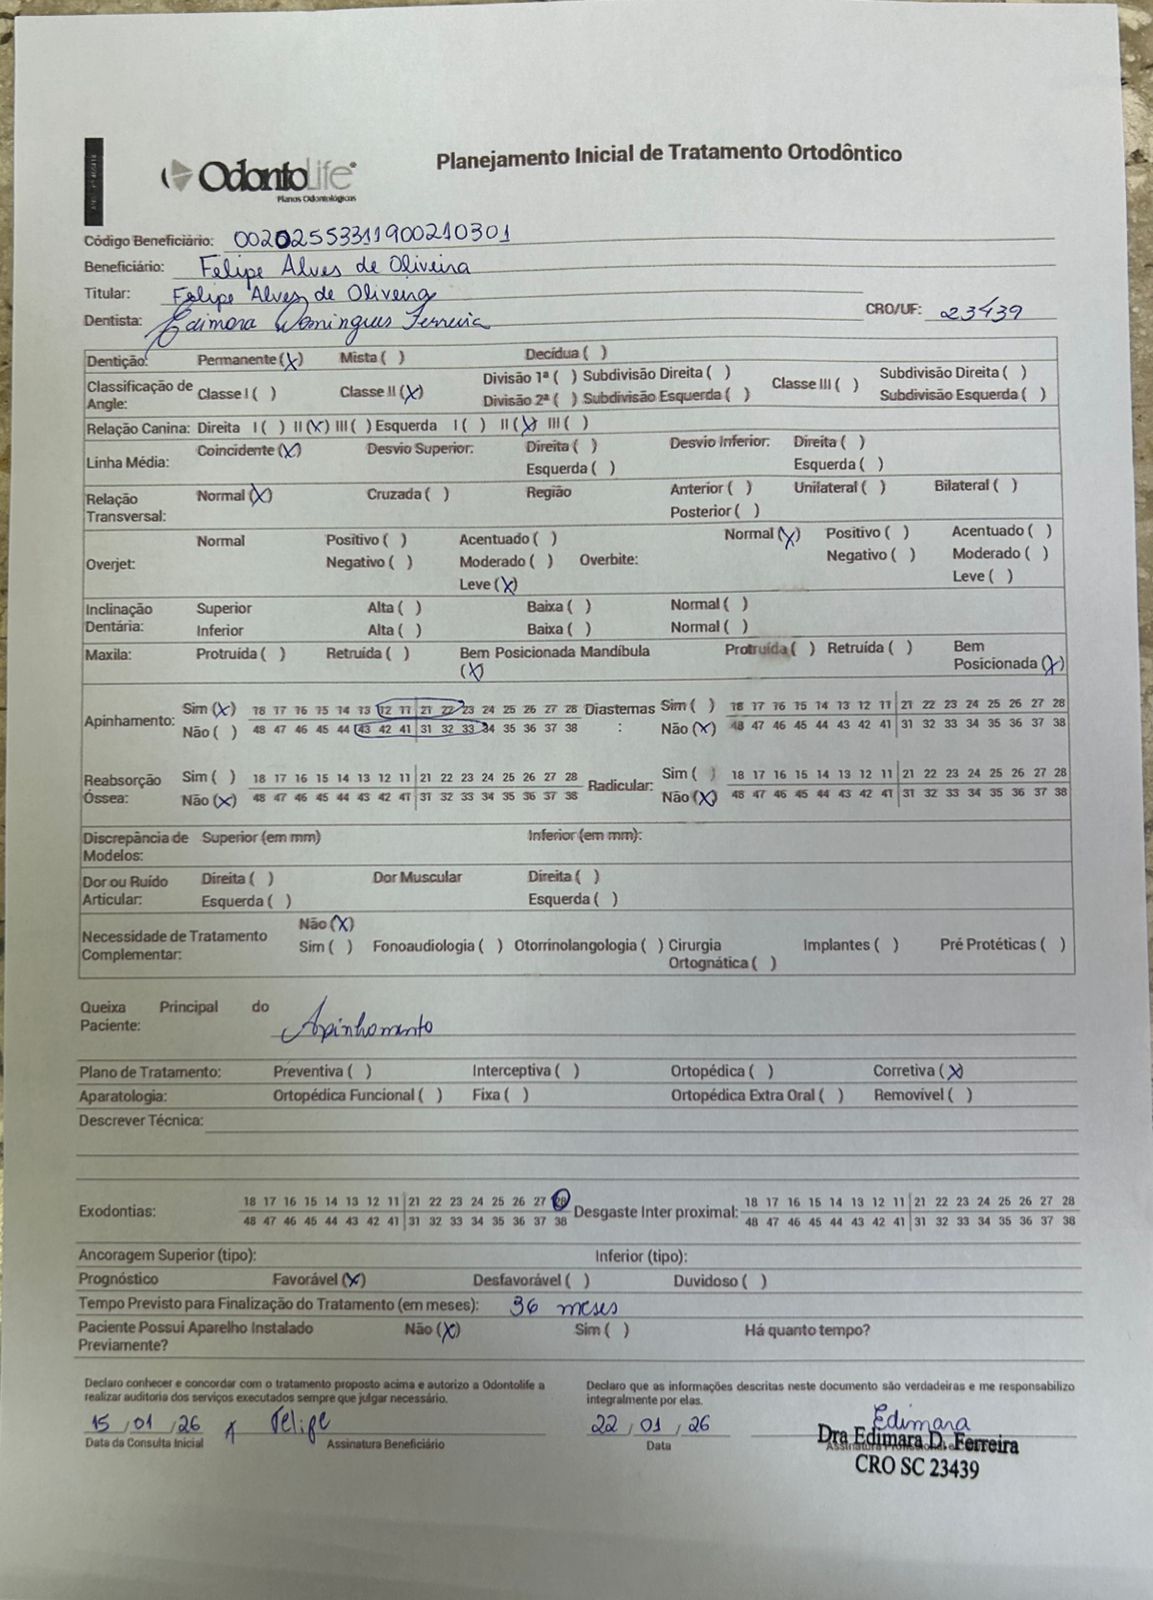 OdontoLife
Planos Odontológicos
Planejamento Inicial de Tratamento Ortodôntico
Código Beneficiário: 00202553311900210301
Beneficiário: Felipe Alves de Oliveira
Titular: Felipe Alves de Oliveira
Dentista: Edimara Domingues Ferreira CRO/UF: 23439
Dentição: Permanente (X) Mista ( ) Decídua ( )
Classificação de Angle: Classe I ( ) Classe II (X) Divisão 1ª ( ) Subdivisão Direita ( ) Classe III ( ) Subdivisão Direita ( )
Divisão 2ª ( ) Subdivisão Esquerda ( ) Subdivisão Esquerda ( )
Relação Canina: Direita I ( ) II (X) III ( ) Esquerda I ( ) II (X) III ( )
Linha Média: Coincidente (X) Desvio Superior: Direita ( ) Desvio Inferior: Direita ( )
Esquerda ( ) Esquerda ( )
Relação Transversal: Normal (X) Cruzada ( ) Região Anterior ( ) Unilateral ( ) Bilateral ( )
Posterior ( )
Overjet: Normal Positivo ( ) Acentuado ( ) Overbite: Normal (X) Positivo ( ) Acentuado ( )
Negativo ( ) Moderado ( ) Negativo ( ) Moderado ( )
Leve (X) Leve ( )
Inclinação Dentária: Superior Alta ( ) Baixa ( ) Normal ( )
Inferior Alta ( ) Baixa ( ) Normal ( )
Maxila: Protruída ( ) Retruída ( ) Bem Posicionada (X) Mandíbula Protruída ( ) Retruída ( ) Bem Posicionada (X)
Apinhamento: Sim (X) 18 17 16 15 14 13 12 11 21 22 23 24 25 26 27 28 Diastemas: Sim ( ) 18 17 16 15 14 13 12 11 21 22 23 24 25 26 27 28
Não ( ) 48 47 46 45 44 43 42 41 31 32 33 34 35 36 37 38 Não (X) 48 47 46 45 44 43 42 41 31 32 33 34 35 36 37 38
Reabsorção Óssea: Sim ( ) 18 17 16 15 14 13 12 11 21 22 23 24 25 26 27 28 Radicular: Sim ( ) 18 17 16 15 14 13 12 11 21 22 23 24 25 26 27 28
Não (X) 48 47 46 45 44 43 42 41 31 32 33 34 35 36 37 38 Não (X) 48 47 46 45 44 43 42 41 31 32 33 34 35 36 37 38
Discrepância de Modelos: Superior (em mm) Inferior (em mm):
Dor ou Ruído Articular: Direita ( ) Dor Muscular Direita ( )
Esquerda ( ) Esquerda ( )
Necessidade de Tratamento Complementar: Não (X)
Sim ( ) Fonoaudiologia ( ) Otorrinolangologia ( ) Cirurgia Ortognática ( ) Implantes ( ) Pré Protéticas ( )
Queixa Principal do Paciente: Apinhamento
Plano de Tratamento: Preventiva ( ) Interceptiva ( ) Ortopédica ( ) Corretiva (X)
Aparatologia: Ortopédica Funcional ( ) Fixa ( ) Ortopédica Extra Oral ( ) Removível ( )
Descrever Técnica:
Exodontias: 18 17 16 15 14 13 12 11 21 22 23 24 25 26 27 28 Desgaste Inter proximal: 18 17 16 15 14 13 12 11 21 22 23 24 25 26 27 28
48 47 46 45 44 43 42 41 31 32 33 34 35 36 37 38 48 47 46 45 44 43 42 41 31 32 33 34 35 36 37 38
Ancoragem Superior (tipo): Inferior (tipo):
Prognóstico Favorável (X) Desfavorável ( ) Duvidoso ( )
Tempo Previsto para Finalização do Tratamento (em meses): 36 meses
Paciente Possui Aparelho Instalado Previamente? Não (X) Sim ( ) Há quanto tempo?
Declaro conhecer e concordar com o tratamento proposto acima e autorizo a Odontolife a
realizar auditoria dos serviços executados sempre que julgar necessário.
Declaro que as informações descritas neste documento são verdadeiras e me responsabilizo
integralmente por elas.
15/01/26 X Felipe 22/01/26 Edimara
Data da Consulta Inicial Assinatura Beneficiário Data
Dra Edimara D. Ferreira
CRO SC 23439